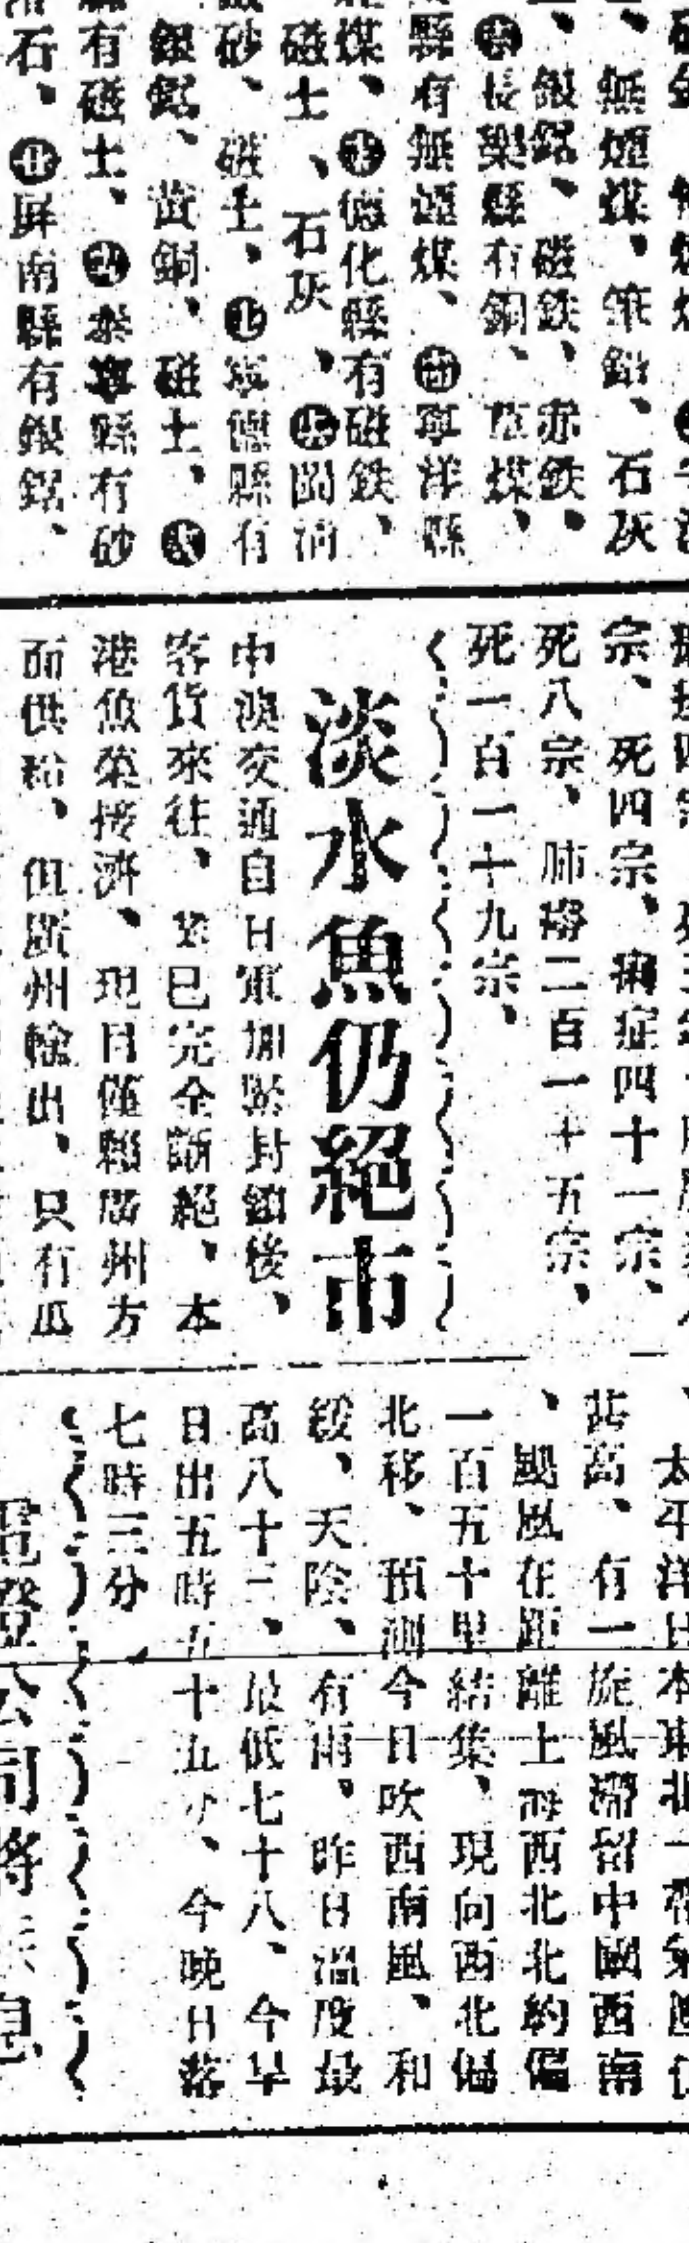 、無煙煤、筆鉛、石灰
銀鉛、磁鉄、赤鉄、
長樂縣有銅、煤、
縣有無煙煤、寧洋縣
煤、德化縣有磁鉄、
磁土、石灰、
砂、磁土、寧德縣有
銀鉛、黃銅、磁土、
有磁土、泰寧縣有砂
石、屏南縣有銀鋁、
宗、死四宗、痢症四十一宗、
死八宗、肺癆二百一十五宗、
死一百一十九宗、
淡水魚仍絕市
中澳交通自日軍加緊封鎖後、
客貨來往、業已完全斷絕、本
港魚菜接濟、現日僅賴廣州方
面供給、但廣州輸出、只有瓜
、太平洋日本東北一帶
甚高、有一旋風滯留中國西南
、颶風在距離上海西北北約偏
一百五十里結集、現向西北偏
北移、預測今日吹西南風、和
緩、天陰、有雨、昨日溫度最
高八十三、最低七十八、今早
日出五時五十五分、今晚日落
七時三分
公司將息